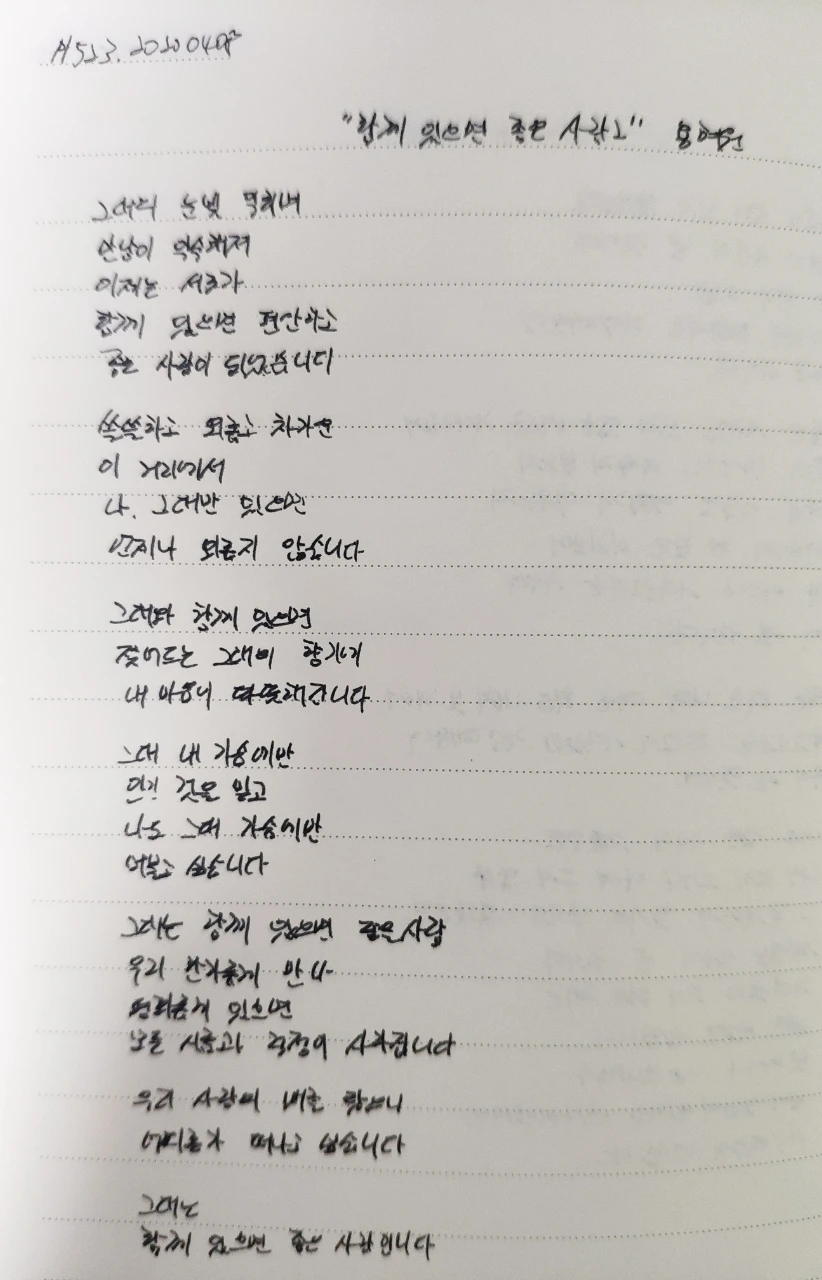 N523. 20200408
"함께 있으면 좋은 사람2" 용혜원
그대의 눈빛 익히며
만남이 익숙해져
이제는 서로가
함께 있으면 편안하고
좋은 사람이 되었습니다
쓸쓸하고 외롭고 차가운
이 거리에서
나, 그대만 있으면
언제나 외롭지 않습니다
그대와 함께 있으면
젖어드는 그대의 향기에
내 마음이 따뜻해집니다
그대 내 가슴에만
안길 것을 믿고
나도 그대 가슴에만
머물고 싶습니다
그대는 함께 있으면 좋은 사람
우리 한가롭게 만나
평화롭게 있으면
모든 시름과 걱정이 사라집니다
우리 사랑의 배를 탔으니
어디론가 떠나고 싶습니다
그대는
함께 있으면 좋은 사람입니다